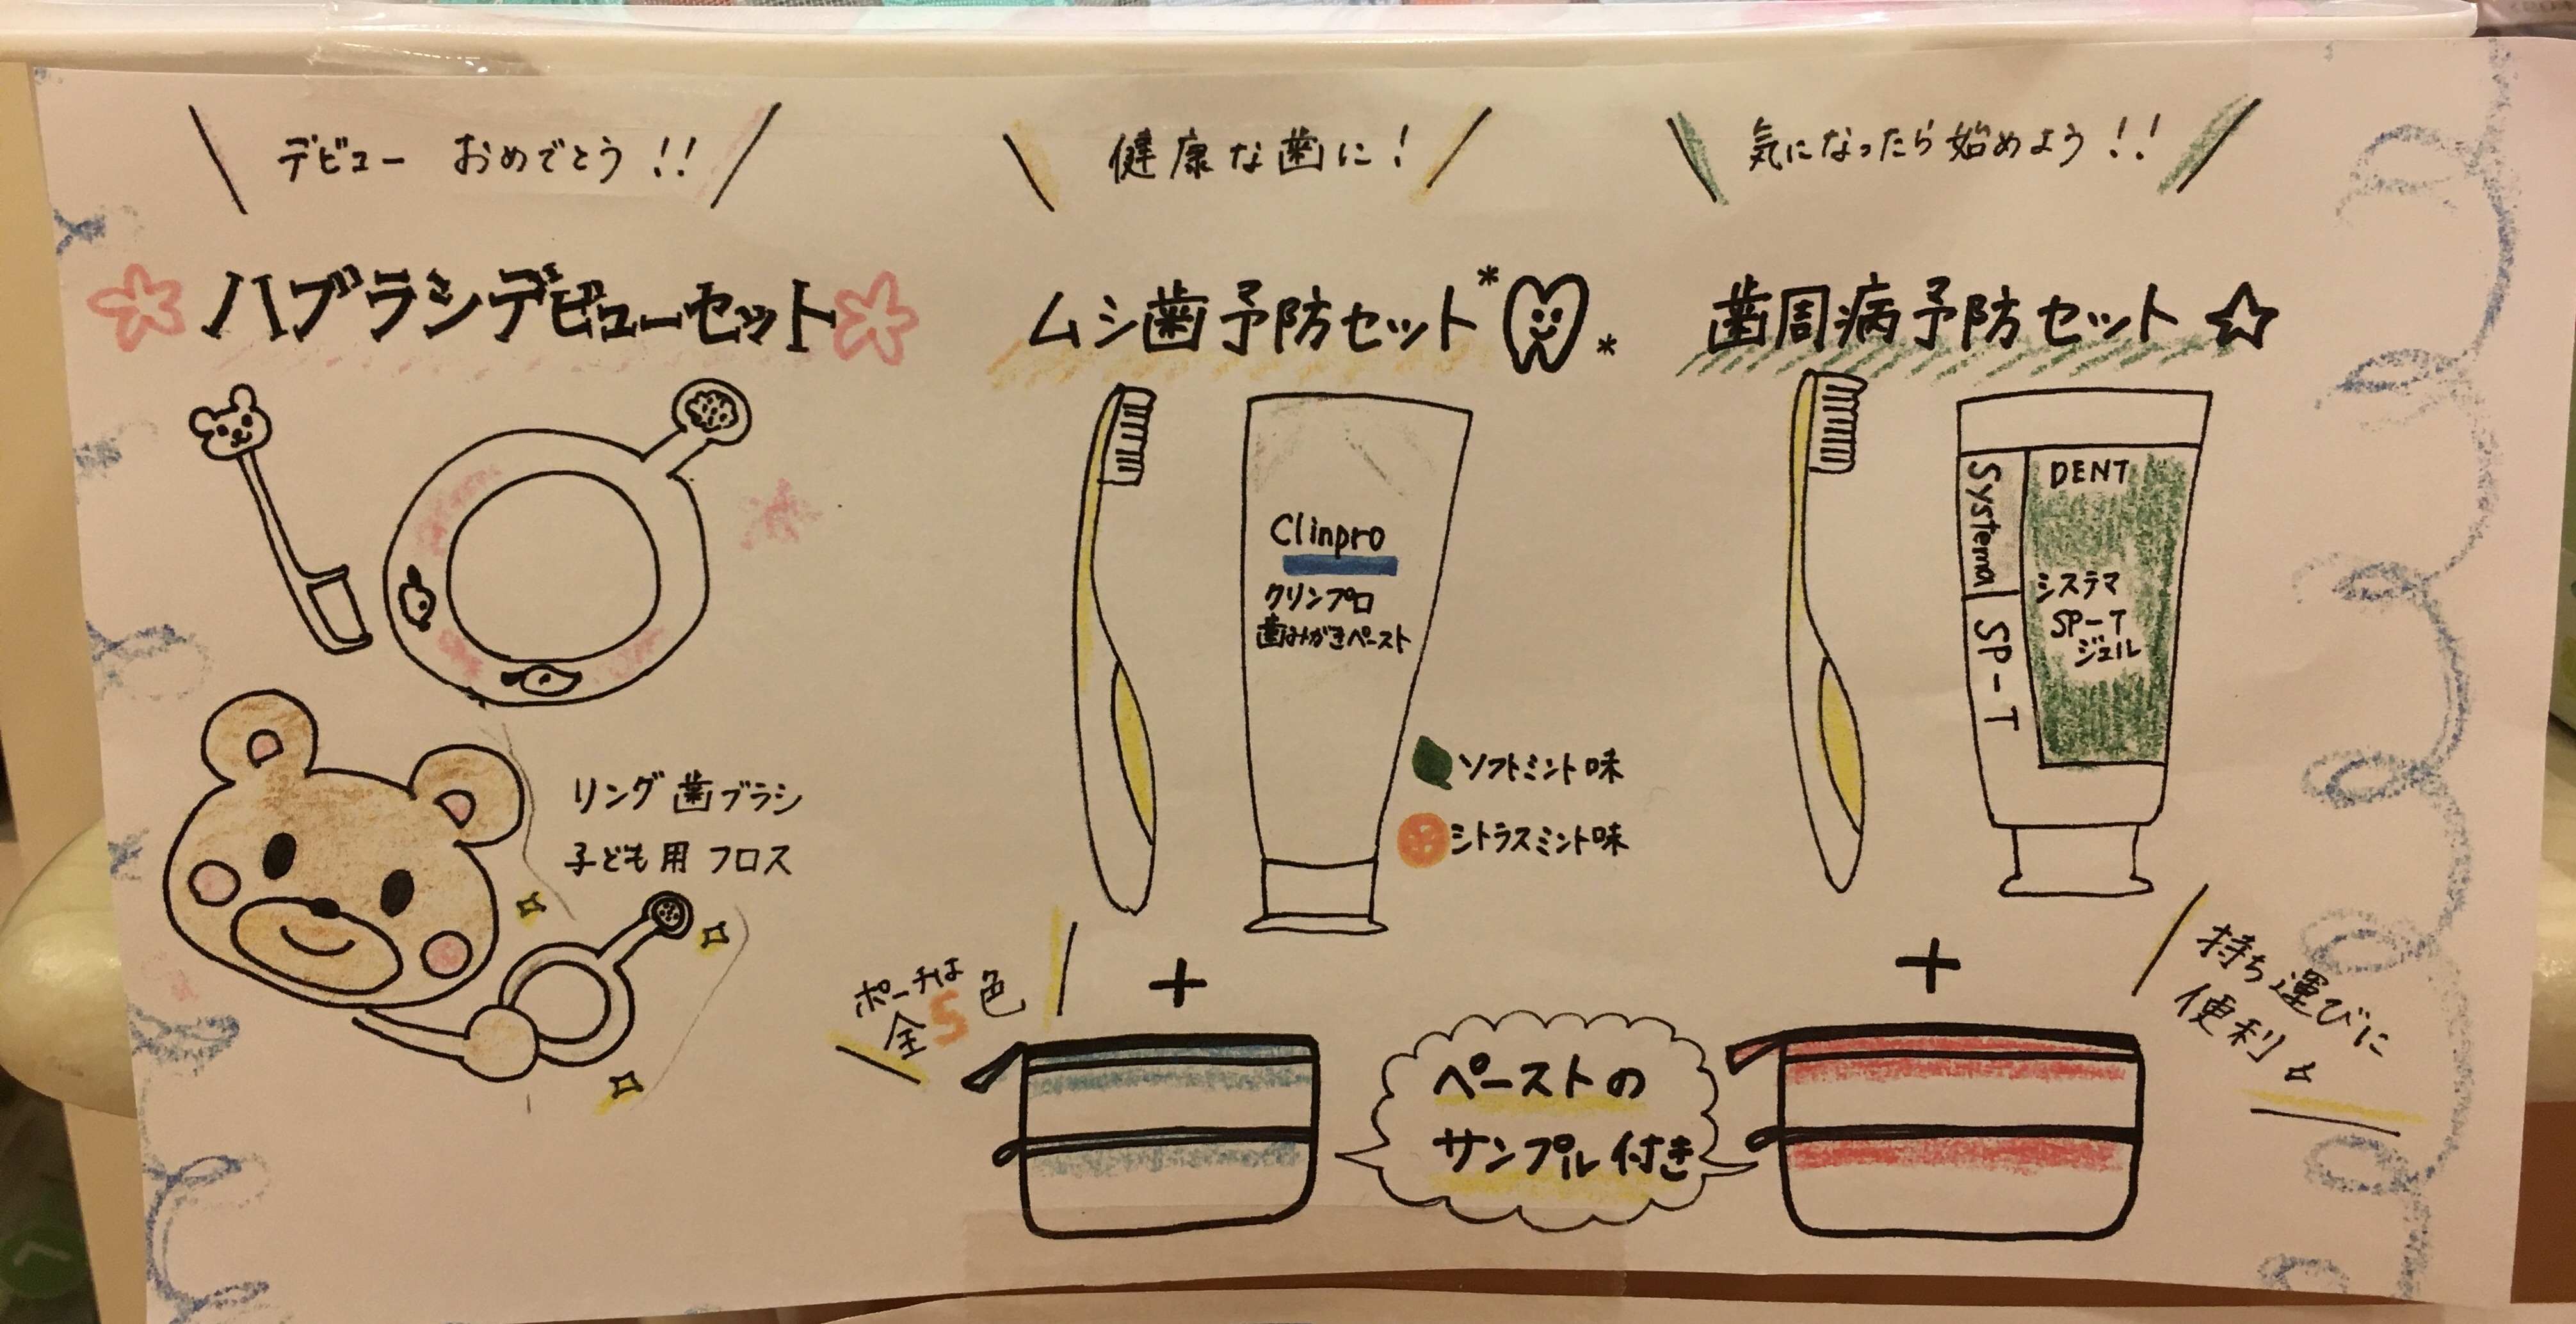 デビュー おめでとう!!
ハブラシデビューセット
リング歯ブラシ
子ども用 フロス
健康な歯に!
ムシ歯予防セット
Clinpro
クリンプロ
歯みがきペースト
ソフトミント味
シトラスミント味
+
ポーチは
全5色
ペーストの
サンプル付き
気になったら始めよう!!
歯周病予防セット☆
Systema SP-T
DENT
システマ
SP-T
ジェル
+
持ち運びに
便利☆